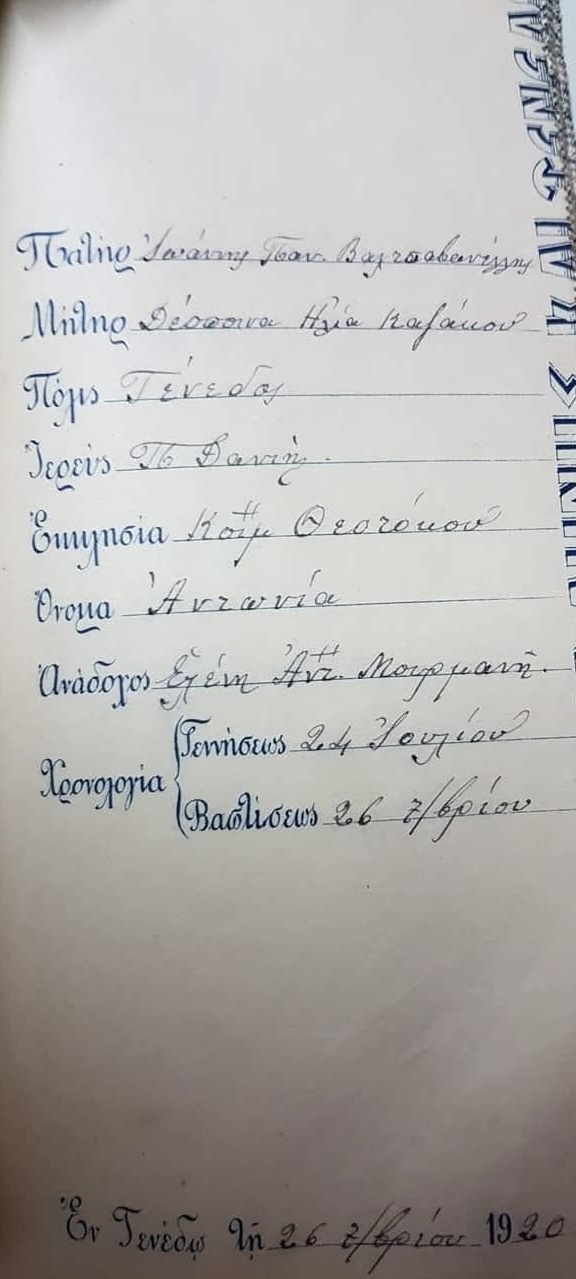 Πατὴρ Ἰωάννης Παν.
Μήτηρ Δέσποινα Ηλία Καζάκου
Πόλις Τένεδος
Ἱερεὺς Π Δανιὴλ.
Ἐκκλησία Κοίμ Θεοτόκου
Ὄνομα Ἀντωνία
Ἀνάδοχος Ἑλένη Ἀντ. Μουρμανῆ.
Χρονολογία
Γεννήσεως 24 Ἰουλίου
Βαπτίσεως 26 7/βρίου
Ἐν Τενέδῳ τῇ 26 7/βρίου 1920